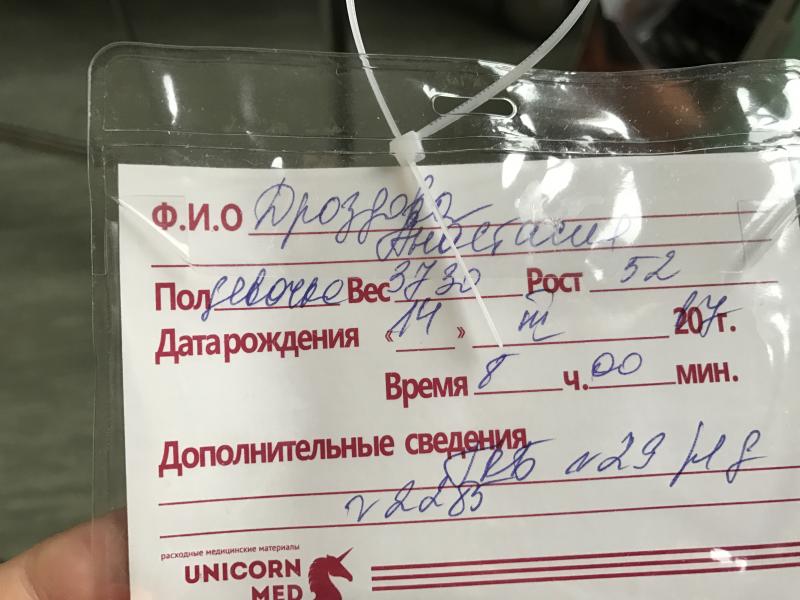 Ф.И.О Дроздова
Анастасия
Пол девочка Вес 3730 Рост 52
Дата рождения « 14 » III 2017 г.
Время 8 ч. 00 мин.
Дополнительные сведения
N29
N2283
расходные медицинские материалы
UNICORN
MED